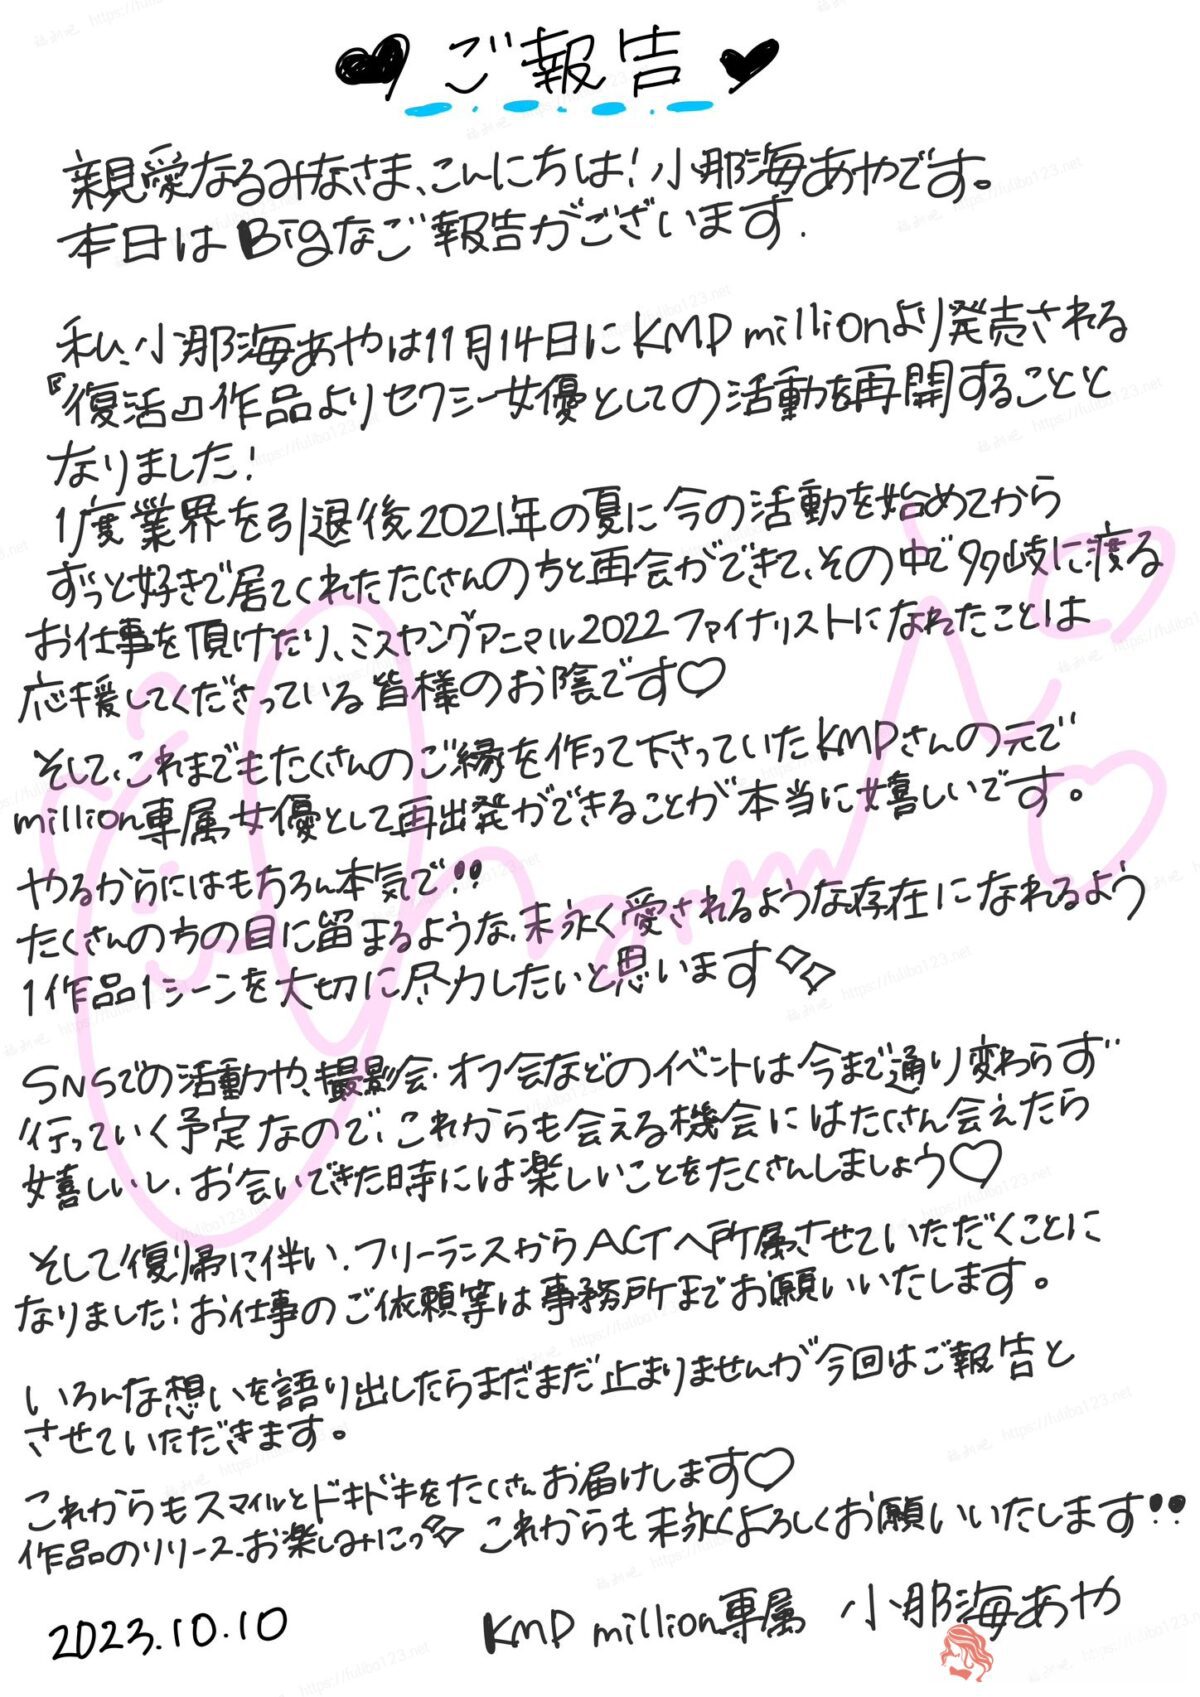 ご報告
親愛なるみなさま、こんにちは!小那海あやです。
本日はBigなご報告がございます.
私、小那海あやは11月14日にKMP millionより発売される
『復活』作品よりセクシー女優としての活動を再開することと
なりました!
1度業界を引退後2021年の夏に今の活動を始めてから
ずっと好きで居てくれたたくさんの方と再会ができて、その中で多岐に渡る
お仕事を頂けたり、ミスヤングアニマル2022ファイナリストになれたことは
応援してくださっている皆様のお陰です♡
そして、これまでもたくさんのご縁を作って下さっていたKMPさんの元で
million専属女優として再出発ができることが本当に嬉しいです。
やるからにはもちろん本気で!!
たくさんの方の目に留まるような、末永く愛されるような存在になれるよう
1作品1シーンを大切に尽力したいと思います
SNSでの活動や、撮影会・オフ会などのイベントは今まで通り変わらず
行っていく予定なので、これからも会える機会にはたくさん会えたら
嬉しいし、お会いできた時には楽しいことをたくさんしましょう♡
そして復帰に伴い、フリーランスからACTへ所属させていただくことに
なりました!お仕事のご依頼等は事務所までお願いいたします。
いろんな想いを語り出したらまだまだ止まりませんが今回はご報告と
させていただきます。
これからもスマイルとドキドキをたくさんお届けします♡
作品のリリース、お楽しみにっ これからも末永くよろしくお願いいたします!!
2023.10.10 KMP million専属 小那海あや